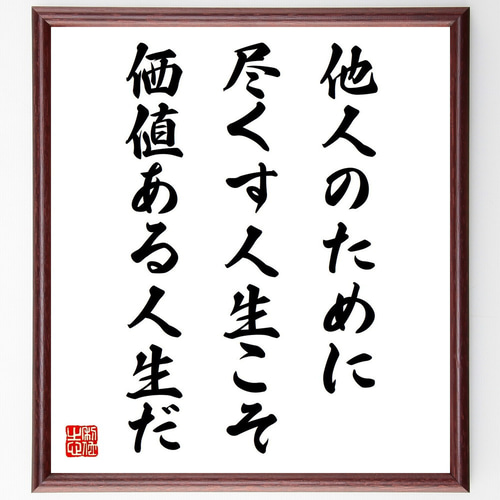 他人のために
尽くす人生こそ
価値ある人生だ